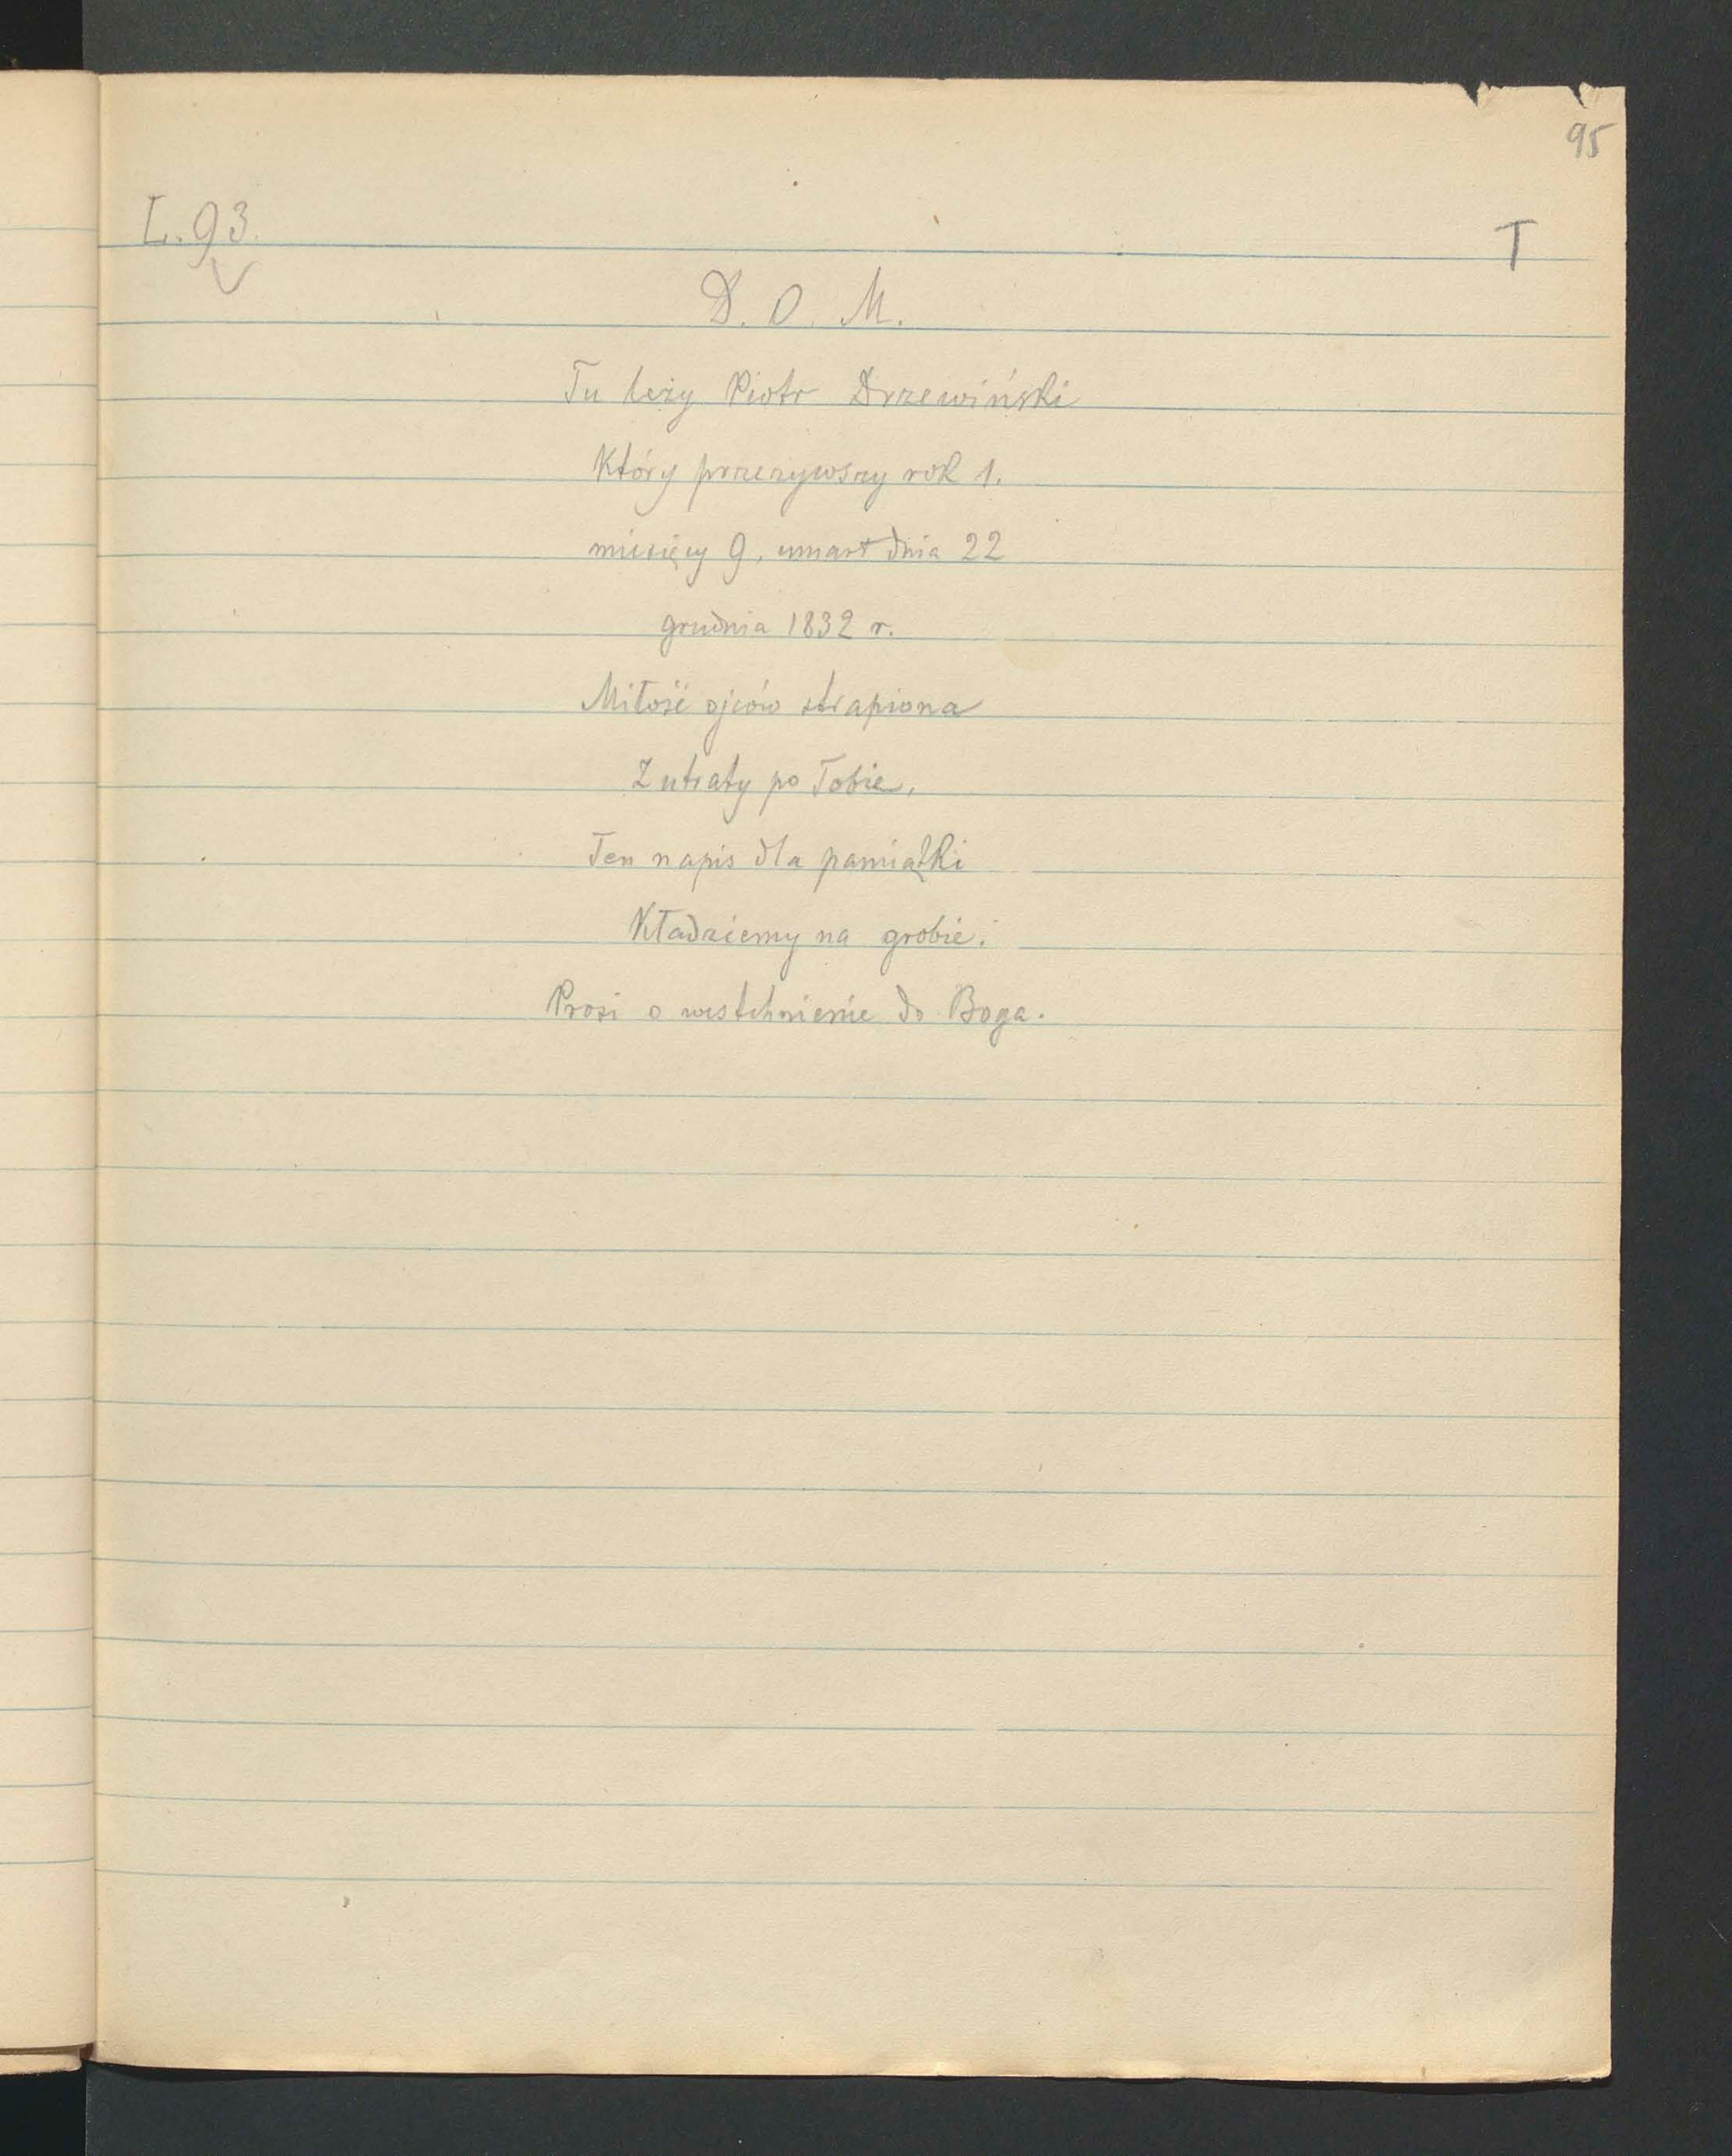 95
L. 93.
T
D. O. M.
Tu leży Piotr Drzewiński
Który przezywszy rok 1.
miesięcy 9, umarł dnia 22
grudnia 1832 r.
Miłość ojców strapiona
Z utraty po Tobie,
Ten napis dla pamiątki
Kładziemy na grobie.
Prosi o westchnienie do Boga.